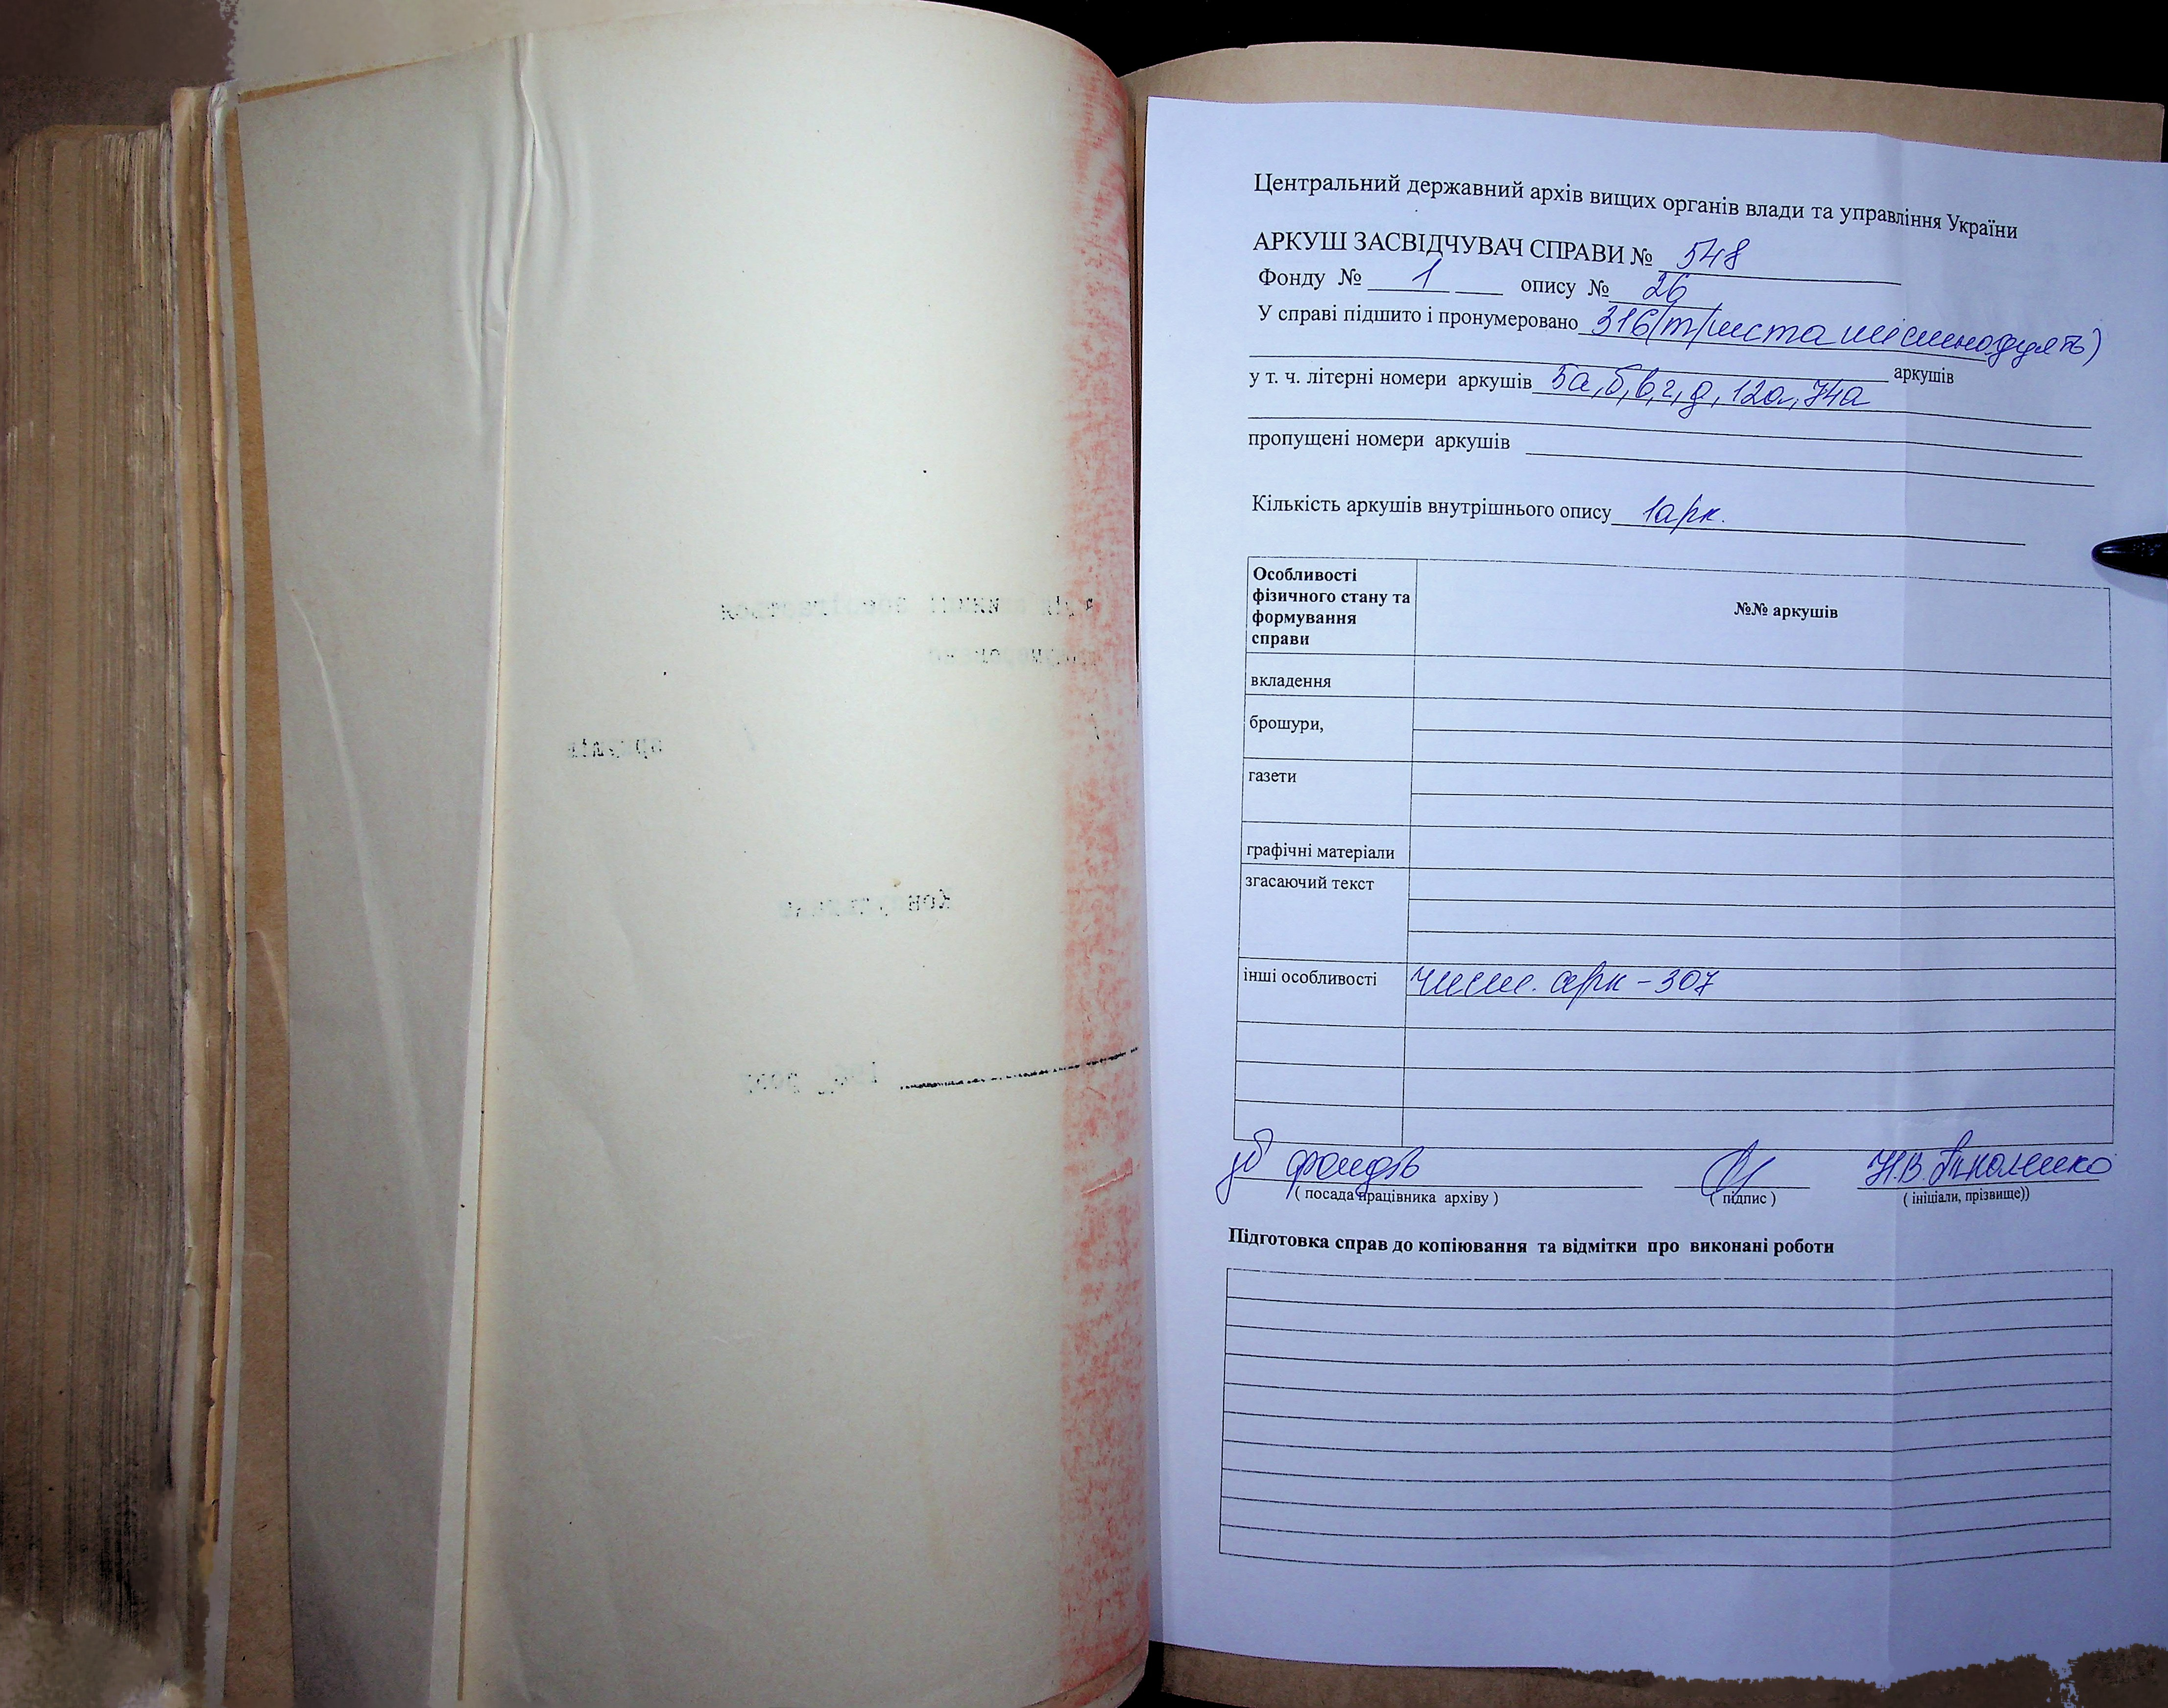 аркушів
року
Центральний державний архів вищих органів влади та управління України
АРКУШ ЗАСВІДЧУВАЧ СПРАВИ № 548
Фонду № 1 опису № 26
У справі підшито і пронумеровано 316 (триста шістнадцять)
аркушів
у т. ч. літерні номери аркушів 5а, б, в, г, д, 12а, 74а
пропущені номери аркушів
Кількість аркушів внутрішнього опису 1 арк.
Особливості фізичного стану та формування справи
№№ аркушів
вкладення
брошури,
газети
графічні матеріали
згасаючий текст
інші особливості чист. арк - 307
фондів Н.В.
( посада працівника архіву ) ( підпис ) ( ініціали, прізвище))
Підготовка справ до копіювання та відмітки про виконані роботи